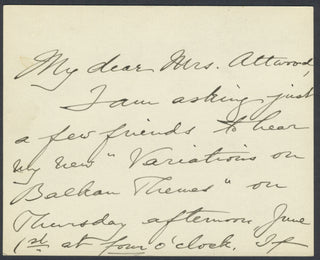 My dear Mrs. Attwood,
I am asking just
a few friends to hear
my new "Variations on
Balkan Themes" on
Thursday afternoon June
1st at four o'clock. If